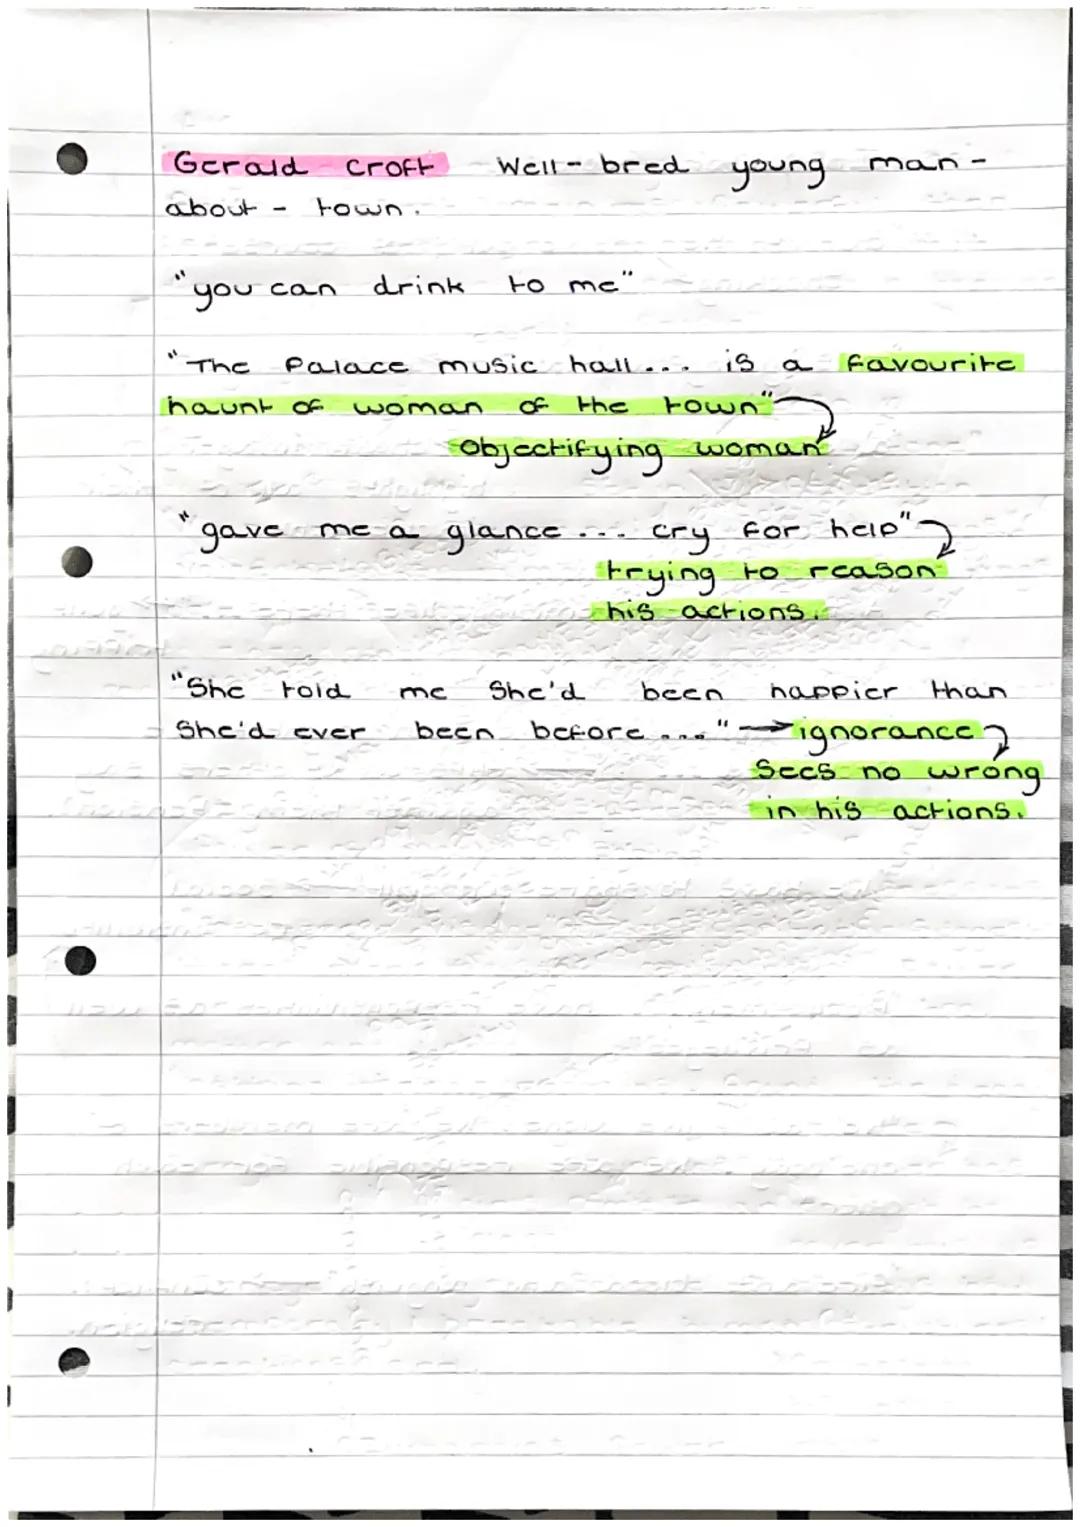 Gerald Croft Well-bred young man-
about-town.
"you can drink to me"
"The Palace music hall... is a favourite
haunt of woman of the town"
Objectifying woman
"gave me a glance... cry for help"
trying to reason
his actions.
"She told me She'd been happier than
She'd ever been before..." → ignorance
Sees no wrong
in his actions.